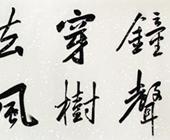 鐘聲
穿樹
去風